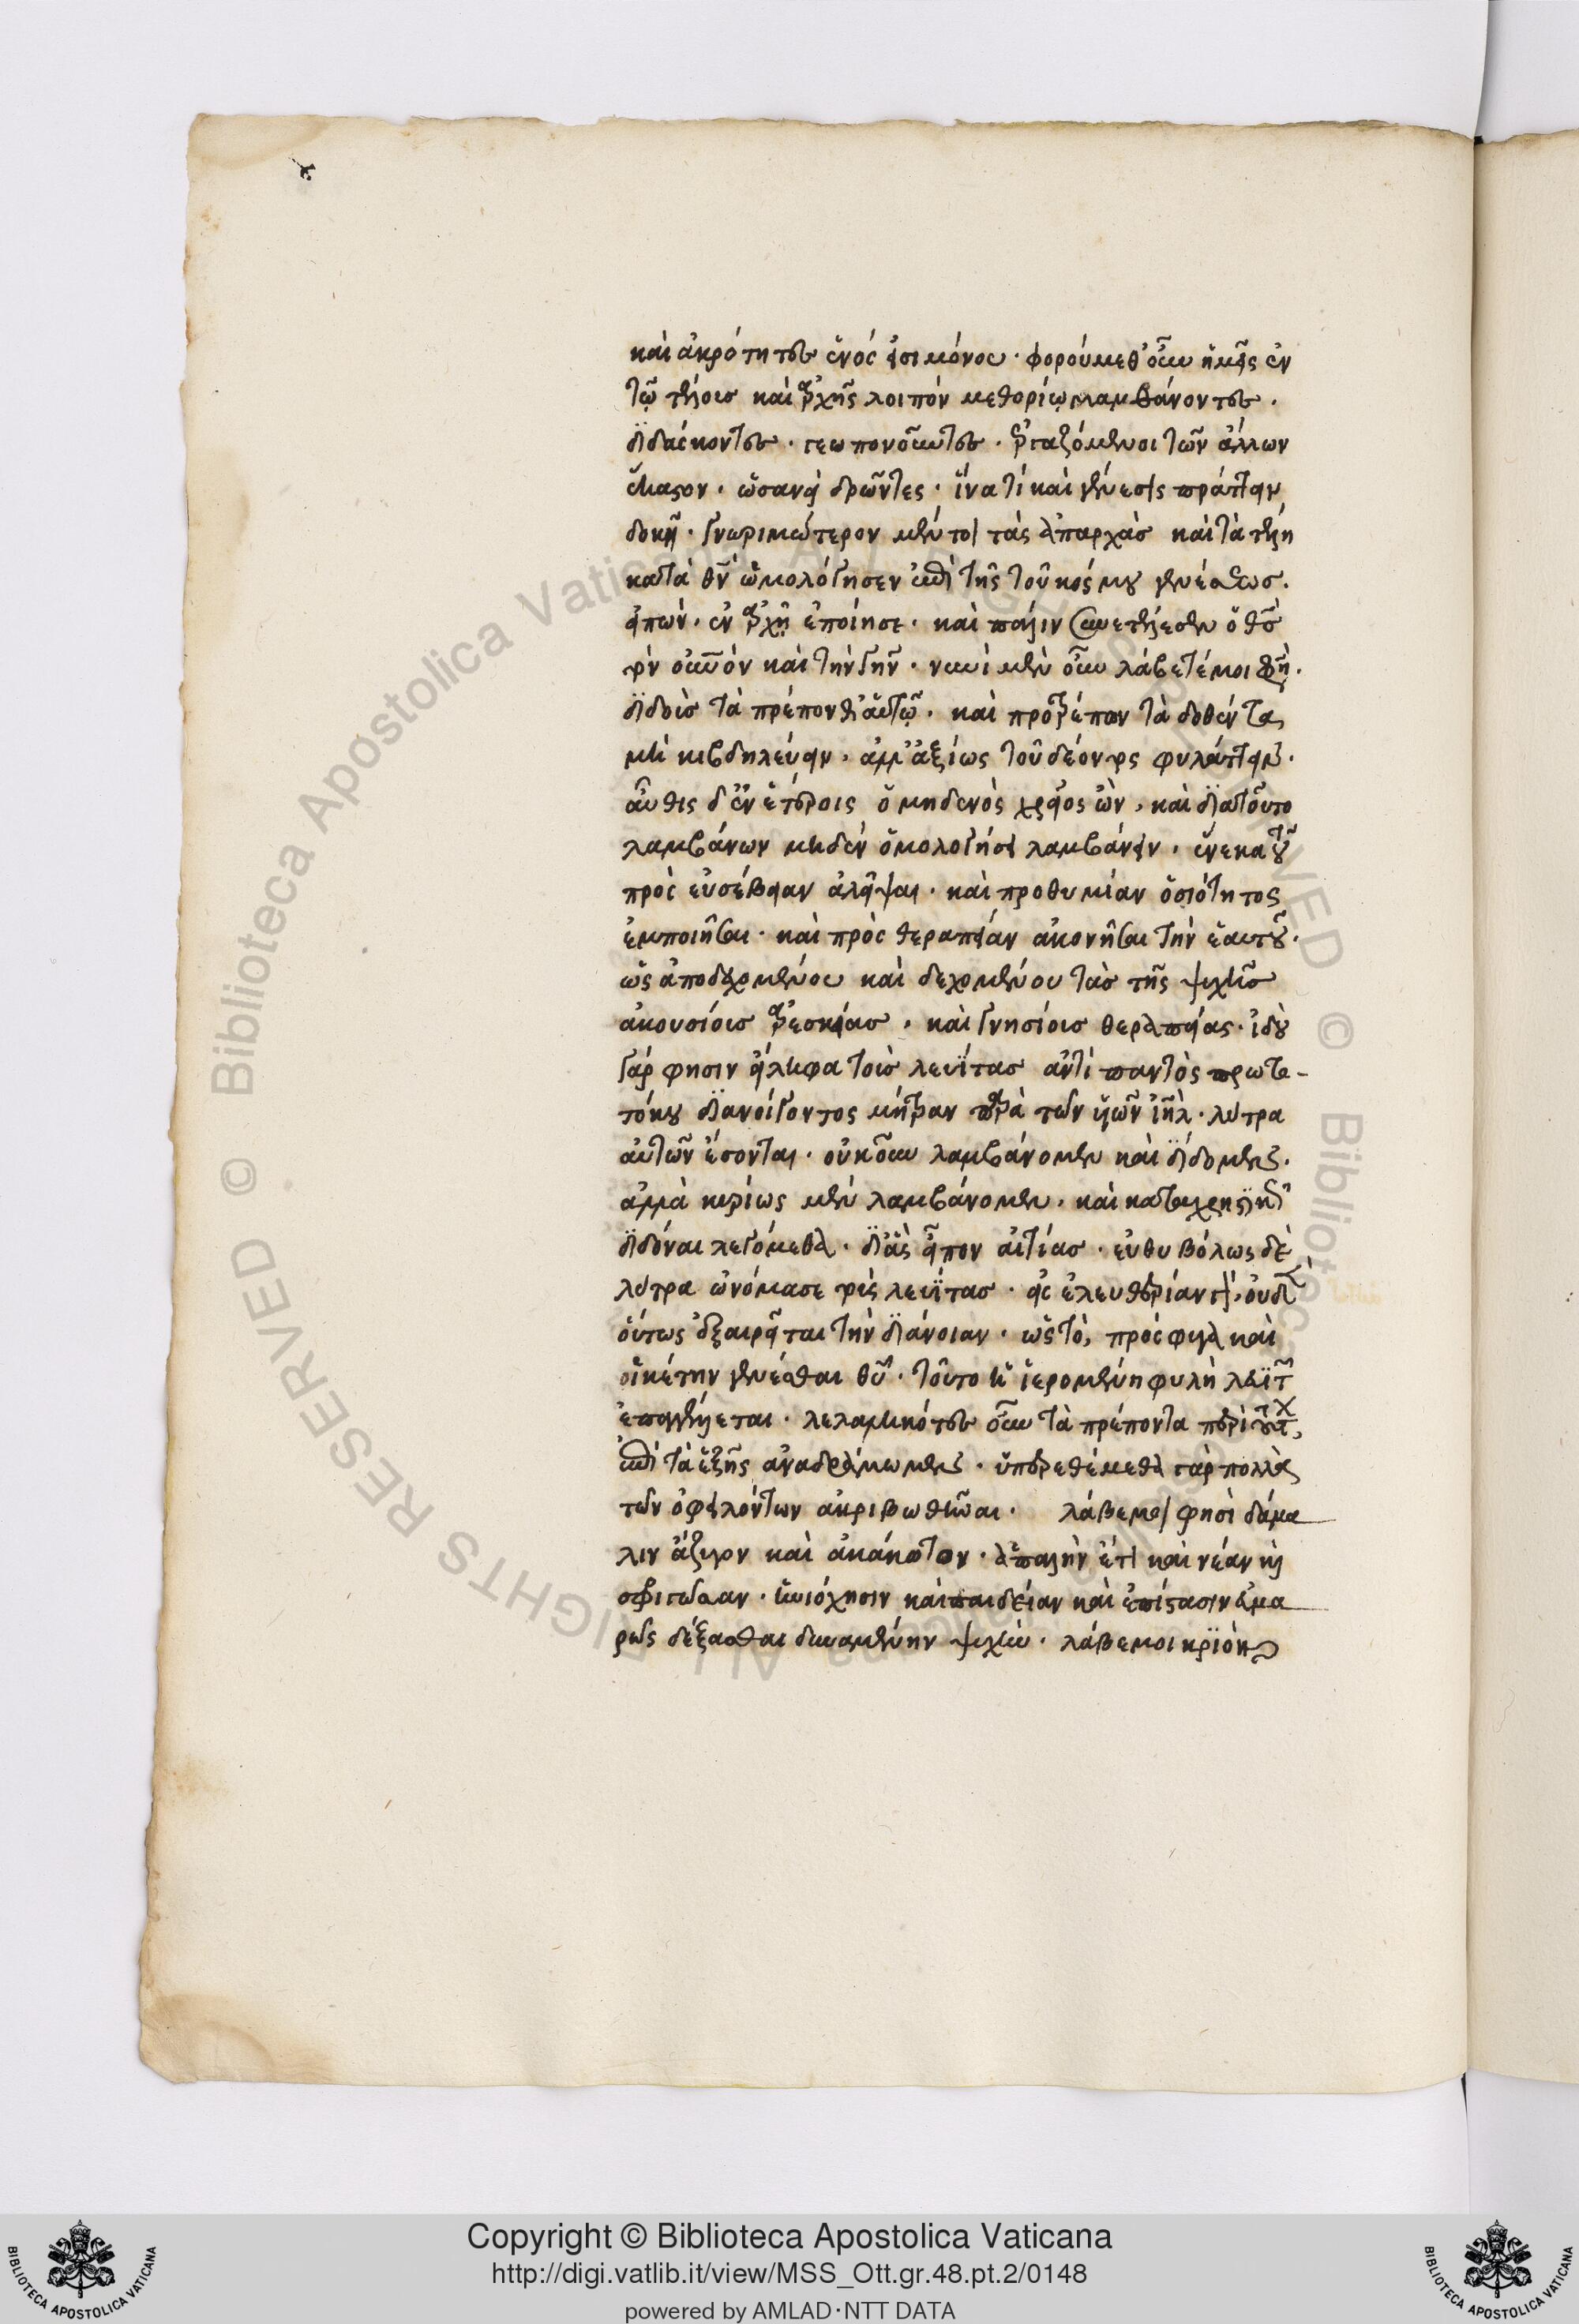 καὶ ἀκρότητες ἑνός εἰσι μόνου· φορούμεθ' οὖν ἡμεῖς ἐν
τῷ τέλους καὶ ἀρχῆς λοιπόν μεθορίῳ λαμβάνοντες·
διδάσκοντες· γεωπονοῦντες· ἐργαζόμενοι τῶν ἄλλων
ἕκαστον· ὡσανεὶ δρῶντες· ἵνα τί καὶ γένεσις πράττειν
δοκῇ· γνωριμώτερον μέντοι τὰς ἀπαρχὰς καὶ τὰ τέλη
κατὰ θν̅ ὡμολόγησεν ἐπὶ τῆς τοῦ κόσμου γενέσεως·
εἰπών· ἐν ἀρχῇ ἐποίησε· καὶ πάλιν συνετέλεσεν ὁ θς̅
τὸν οὐνὸν καὶ τὴν γῆν· νυνὶ μὲν οὖν λάβετέ μοι φησὶ·
διδοὺς τὰ πρέποντα αὑτῷ· καὶ προτρέπων τὰ δοθέντα
μὴ κιβδηλεύειν, ἀλλ' ἀξίως τοῦ δέοντος φυλάττειν·
αὖθις δ' ἐν ἑτέροις ὁ μηδενὸς χρεῖος ὢν, καὶ διατοῦτο
λαμβάνων μηδὲν ὁμολογήσει λαμβάνειν, ἕνεκα τοῦ
πρὸς εὐσέβειαν ἀλεῖψαι· καὶ προθυμίαν ὁσιότητος
ἐμποιῆσαι· καὶ πρὸς θεραπείαν ἀκονῆσαι τὴν ἑαυτοῦ·
ὡς ἀποδεχομένου καὶ δεχομένου τὰς τῆς ψυχῆς
ἀκουσίους ἀρεσκείας, καὶ γνησίους θεραπείας· ἰδοὺ
γάρ φησιν εἴληφα τοὺς λευΐτας ἀντὶ παντὸς πρωτο-
τόκου διανοίγοντος μήτραν παρὰ τῶν υἱῶν ιη̅λ· λύτρα
αὐτῶν ἔσονται· οὐκοῦν λαμβάνομεν καὶ δίδομεν·
ἀλλὰ κυρίως μὲν λαμβάνομεν, καὶ καταχρηστικῶς
διδόναι λεγόμεθα· δι' ἃς εἶπον αἰτίας· εὐθυβόλως δὲ
λύτρα ὠνόμασε τοὺς λευΐτας· εἰς ἐλευθερίαν γὰρ, οὐδὲν
οὕτως ἐξαιρεῖται τὴν διάνοιαν· ὡς τὸ, πρόσφυγα καὶ
οἰκέτην γενέσθαι θυ̅· τοῦτο ἡ ἱερομένη φυλὴ λευϊτ
ἐπαγγέλλεται· λελαληκότες οὖν τὰ πρέποντα περὶ
ἐπὶ τὰ ἑξῆς ἀναδράμωμεν· ὑπερεθέμεθα γὰρ πολλὰ
τῶν ὀφειλόντων ἀκριβωθῆναι· λάβε μοι φησὶ δάμα
λιν ἄζυγον καὶ ἀκάκωτον· ἁπαλὴν ἔτι καὶ νέαν καὶ
σφριγῶσαν· ἡνιόχησιν καὶ παιδείαν καὶ ἐπίστασιν ἅμα
ρως δέξασθαι δυναμένην ψυχὴν· λάβε μοι κριὸν